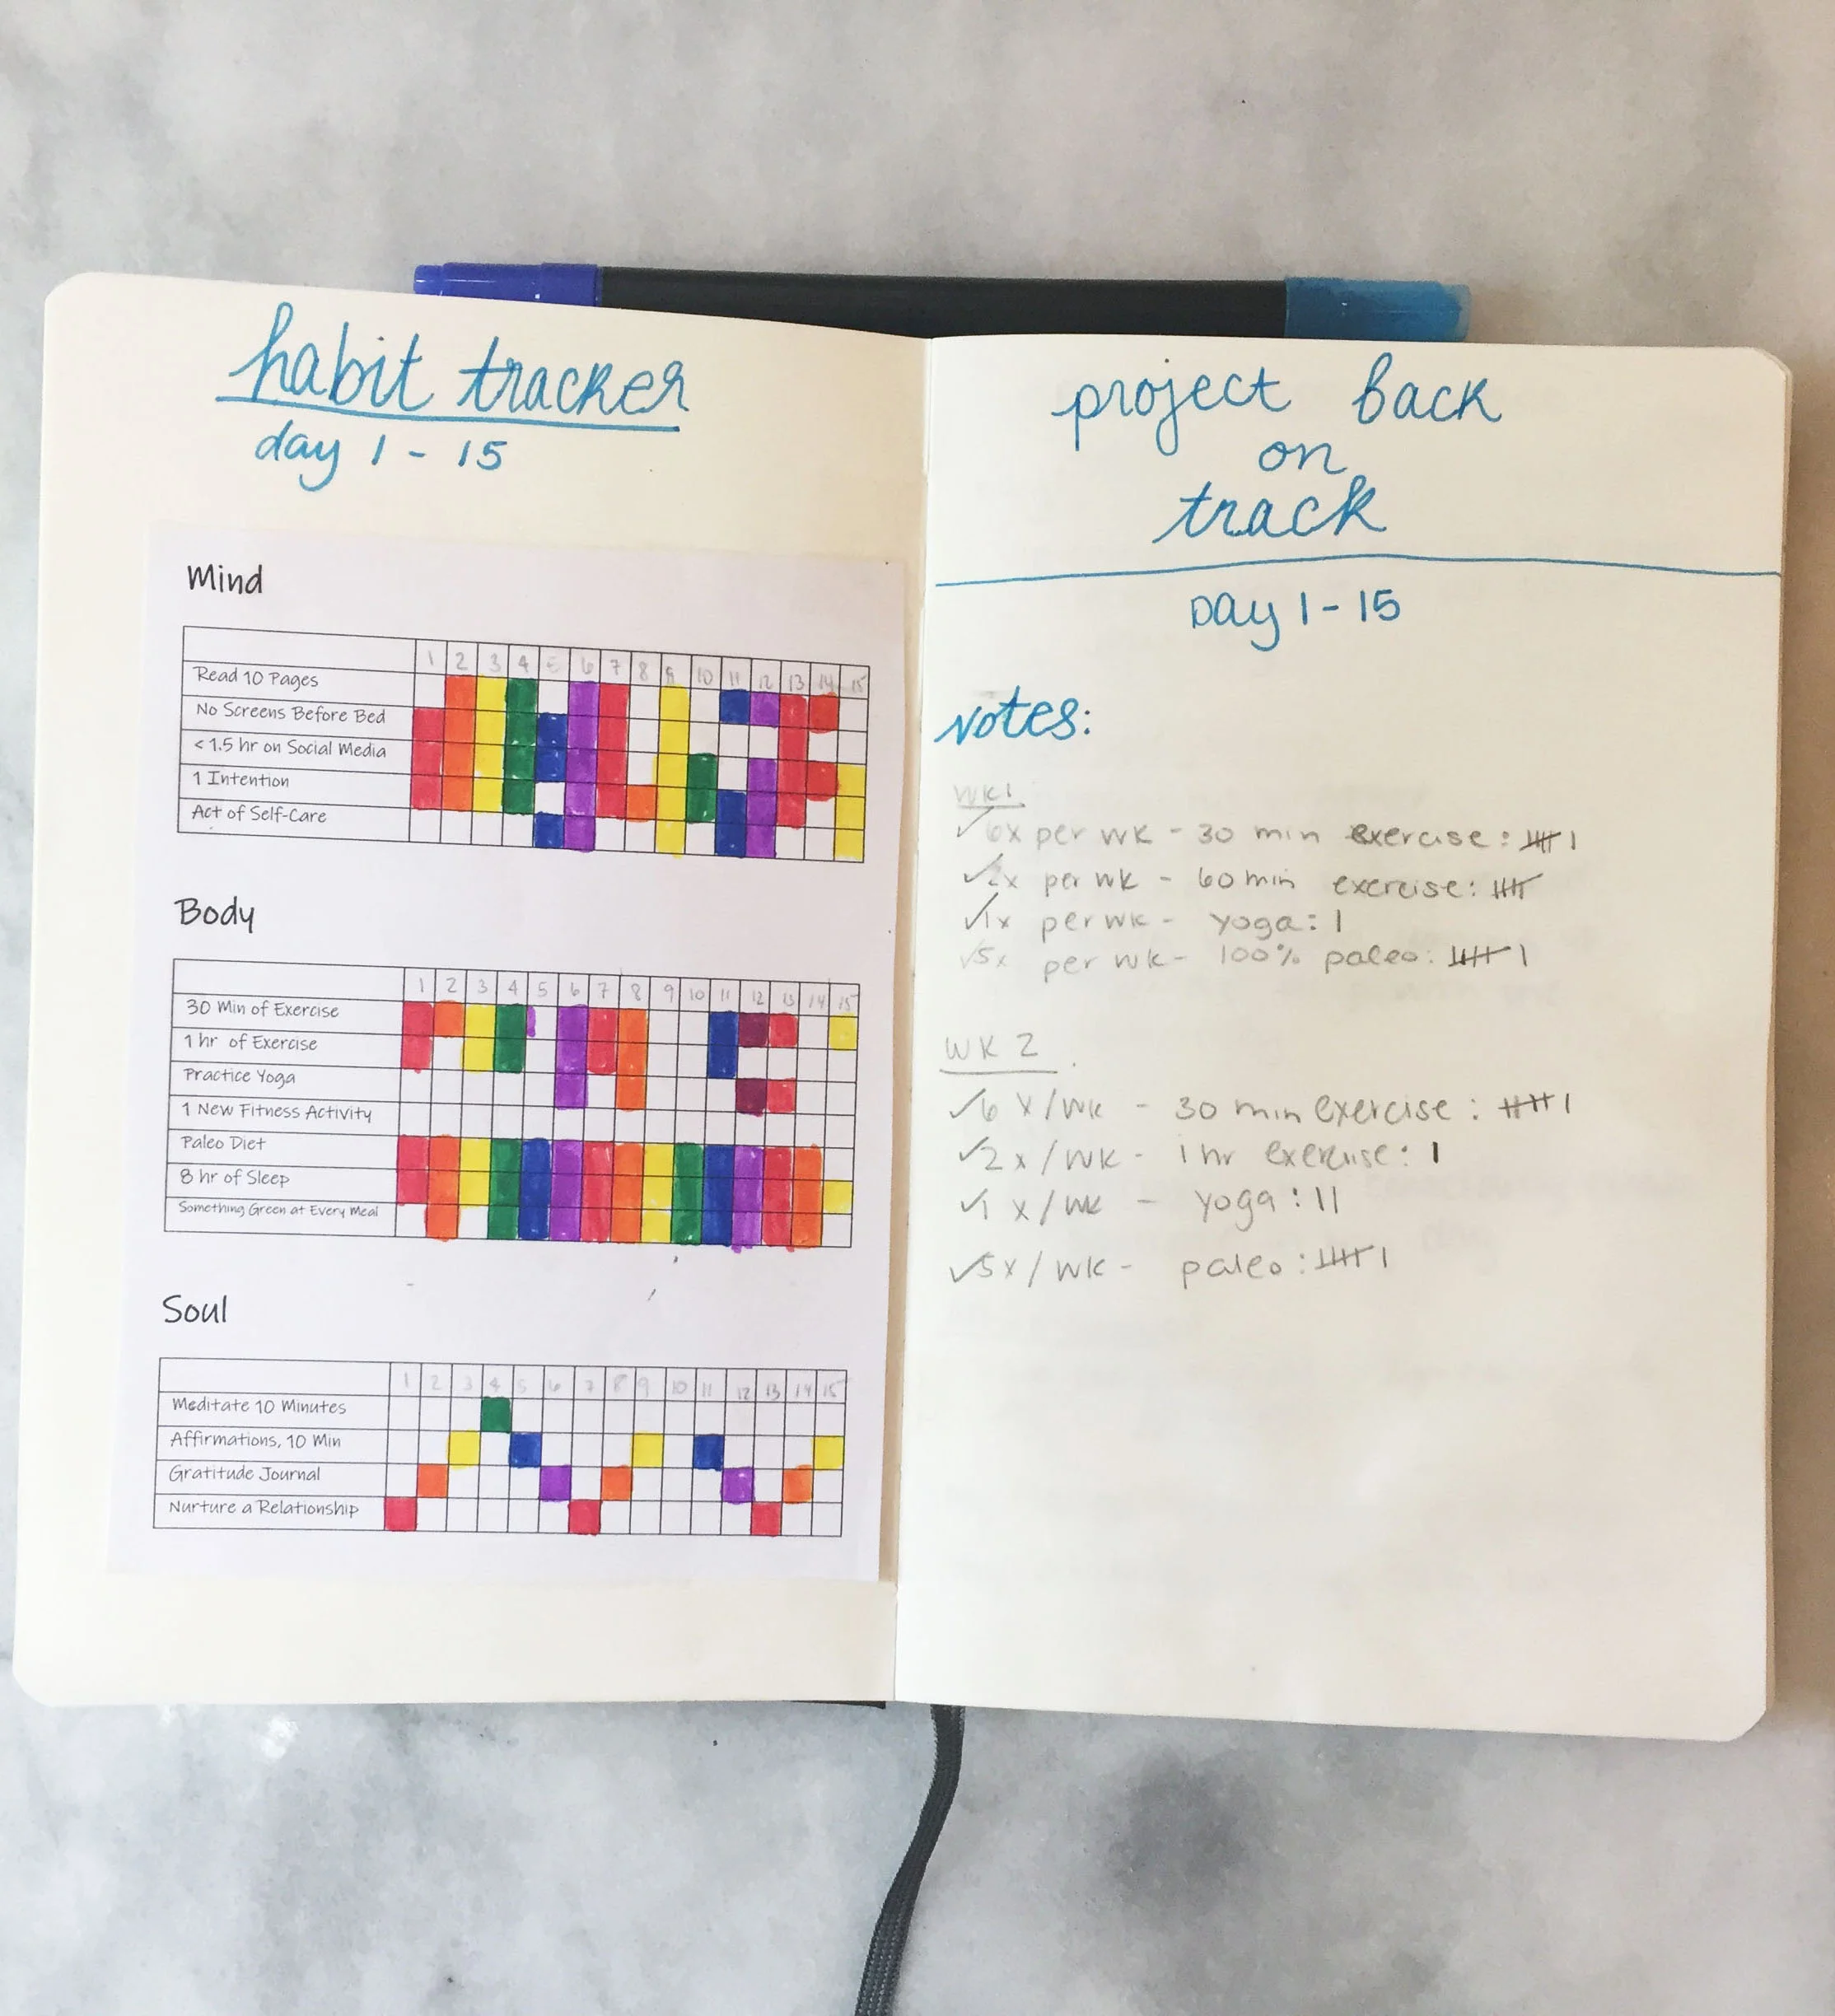 habit tracker
day 1 - 15
Mind
1 2 3 4 5 6 7 8 9 10 11 12 13 14 15
Read 10 Pages
No Screens Before Bed
< 1.5 hr on Social Media
1 Intention
Act of Self-Care
Body
1 2 3 4 5 6 7 8 9 10 11 12 13 14 15
30 Min of Exercise
1 hr of Exercise
Practice Yoga
1 New Fitness Activity
Paleo Diet
8 hr of Sleep
Something Green at Every Meal
Soul
1 2 3 4 5 6 7 8 9 10 11 12 13 14 15
Meditate 10 Minutes
Affirmations, 10 Min
Gratitude Journal
Nurture a Relationship
project back
on
track
Day 1 - 15
Notes:
WK 1
✓ 6x per wk - 30 min exercise: 卌 |
✓ 2x per wk - 60 min exercise: 卌
✓ 1x per wk - yoga: |
✓ 5x per wk - 100% paleo: 卌 |
WK 2
✓ 6 x/wk - 30 min exercise: 卌 |
✓ 2x/wk - 1 hr exercise: |
✓ 1 x/wk - yoga: ||
✓ 5x/wk - paleo: 卌 |